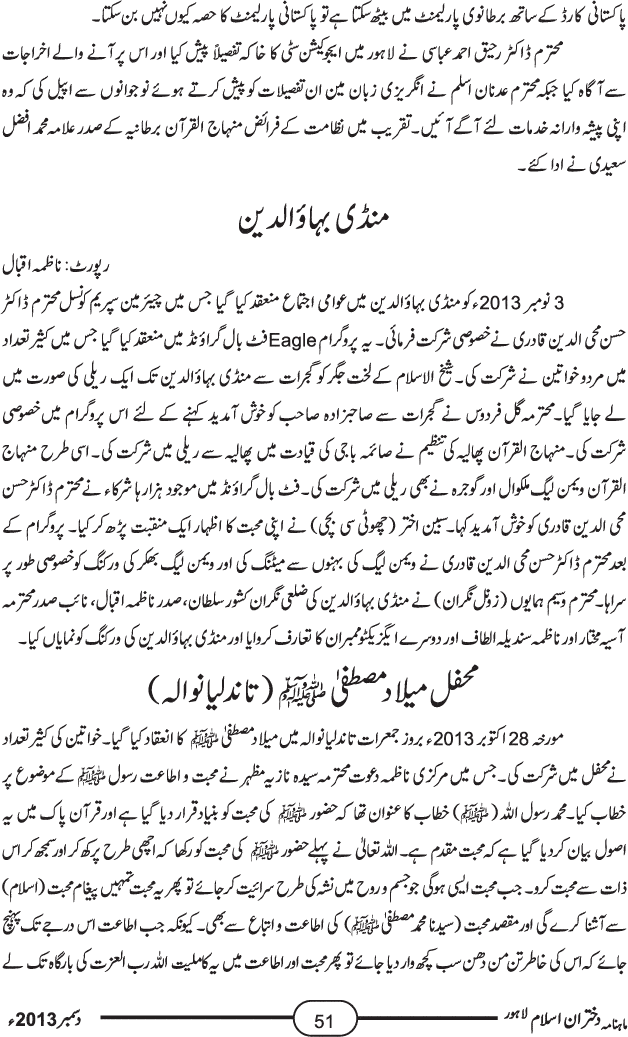 پاکستانی کارڈ کے ساتھ برطانوی پارلیمنٹ میں بیٹھ سکتا ہے تو پاکستانی پارلیمنٹ کا حصہ کیوں نہیں بن سکتا۔
محترم ڈاکٹر رحیق احمد عباسی نے لاہور میں ایجوکیشن سٹی کا خاکہ تفصیلاً پیش کیا اور اس پر آنے والے اخراجات
سے آگاہ کیا جبکہ محترم عدنان اسلم نے انگریزی زبان مین ان تفصیلات کو پیش کرتے ہوئے نوجوانوں سے اپیل کی کہ وہ
اپنی پیشہ وارانہ خدمات لئے آگے آئیں۔ تقریب میں نظامت کے فرائض منہاج القرآن برطانیہ کے صدر علامہ محمد افضل
سعیدی نے ادا کئے۔
منڈی بہاؤالدین
رپورٹ: ناظمہ اقبال
3 نومبر 2013ء کو منڈی بہاؤالدین میں عوامی اجتماع منعقد کیا گیا جس میں چیئرمین سپریم کونسل محترم ڈاکٹر
حسن محی الدین قادری نے خصوصی شرکت فرمائی۔ یہ پروگرام Eagle فٹ بال گراؤنڈ میں منعقد کیا گیا جس میں کثیر تعداد
میں مرد و خواتین نے شرکت کی۔ شیخ الاسلام کے لخت جگر کو گجرات سے منڈی بہاؤالدین تک ایک ریلی کی صورت میں
لے جایا گیا۔ محترمہ گل فردوس نے گجرات سے صاحبزادہ صاحب کو خوش آمدید کہنے کے لئے اس پروگرام میں خصوصی
شرکت کی۔ منہاج القرآن پھالیہ کی تنظیم نے صائمہ باجی کی قیادت میں پھالیہ سے ریلی میں شرکت کی۔ اسی طرح منہاج
القرآن ویمن لیگ ملکوال اور گوجرہ نے بھی ریلی میں شرکت کی۔ فٹ بال گراؤنڈ میں موجود ہزارہا شرکاء نے محترم ڈاکٹر حسن
محی الدین قادری کو خوش آمدید کہا۔ سبین اختر (چھوٹی سی بچی) نے اپنی محبت کا اظہار ایک منقبت پڑھ کر کیا۔ پروگرام کے
بعد محترم ڈاکٹر حسن محی الدین قادری نے ویمن لیگ کی بہنوں سے میٹنگ کی اور ویمن لیگ بھکر کی ورکنگ کو خصوصی طور پر
سراہا۔ محترم وسیم ہمایوں (زونل نگران) نے منڈی بہاؤالدین کی ضلعی نگران کشور سلطان، صدر ناظمہ اقبال، نائب صدر محترمہ
آسیہ مختار اور ناظمہ سندیلہ الطاف اور دوسرے ایگزیکٹو ممبران کا تعارف کروایا اور منڈی بہاؤالدین کی ورکنگ کو نمایاں کیا۔
محفل میلاد مصطفیٰ ﷺ (تاندلیانوالہ)
مورخہ 28 اکتوبر 2013ء بروز جمعرات تاندلیانوالہ میں میلاد مصطفیٰ ﷺ کا انعقاد کیا گیا۔ خواتین کی کثیر تعداد
نے محفل میں شرکت کی۔ جس میں مرکزی ناظمہ دعوت محترمہ سیدہ نازیہ مظہر نے محبت و اطاعت رسول ﷺ کے موضوع پر
خطاب کیا۔ محمد رسول اللہ (ﷺ) خطاب کا عنوان تھا کہ حضور ﷺ کی محبت کو بنیاد قرار دیا گیا ہے اور قرآن پاک میں یہ
اصول بیان کر دیا گیا ہے کہ محبت مقدم ہے۔ اللہ تعالیٰ نے پہلے حضور ﷺ کی محبت کو رکھا کہ اچھی طرح پرکھ کر اور سمجھ کر اس
ذات سے محبت کرو۔ جب محبت ایسی ہوگی جو جسم و روح میں نشہ کی طرح سرائیت کر جائے تو پھر یہ محبت تمہیں پیغام محبت (اسلام)
سے آشنا کرے گی اور مقصد محبت (سیدنا محمد مصطفیٰ ﷺ) کی اطاعت و اتباع سے بھی۔ کیونکہ جب اطاعت اس درجے تک پہنچ
جائے کہ اس کی خاطر تن من دھن سب کچھ وار دیا جائے تو پھر محبت اور اطاعت میں یہ کاملیت اللہ رب العزت کی بارگاہ تک لے
ماہنامہ دختران اسلام لاہور 51 دسمبر 2013ء